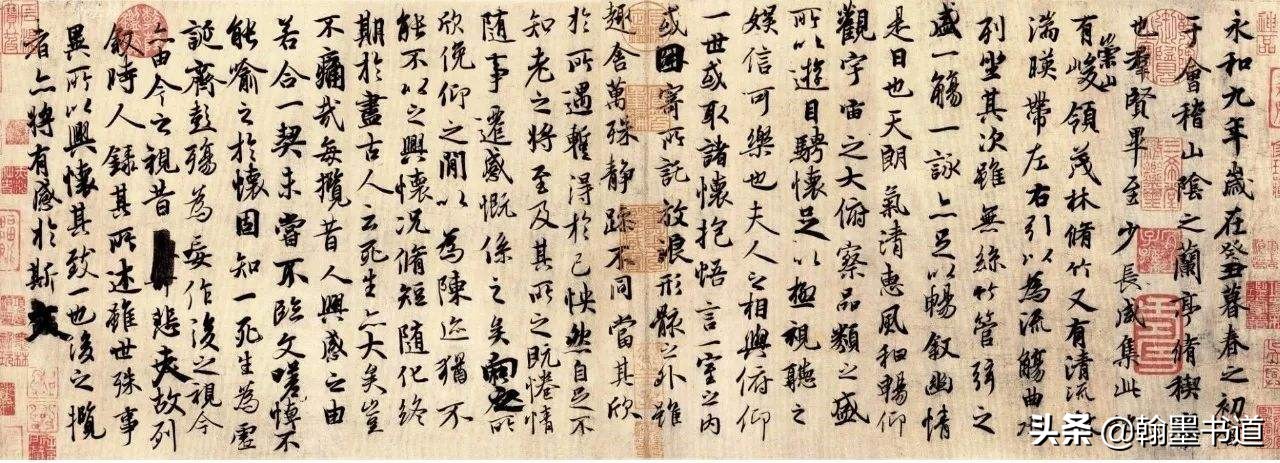 永和九年歲在癸丑暮春之初
于會稽山陰之蘭亭脩禊
也羣賢畢至少長咸集此
有崇山峻領茂林脩竹又有清流
湍暎帶左右引以為流觴曲水
列坐其次雖無絲竹管弦之
盛一觴一詠亦足以暢叙幽情
是日也天朗氣清惠風和暢仰
觀宇宙之大俯察品類之盛
所以遊目騁懷足以極視聽之
娛信可樂也夫人之相與俯仰
一世或取諸懷抱悟言一室之內
或因寄所託放浪形骸之外雖
趣舍萬殊静躁不同當其欣
於所遇蹔得於己怏然自足不
知老之將至及其所之既惓情
隨事遷感慨係之矣向之所
欣俛仰之閒以為陳迹猶不
能不以之興懷況脩短隨化終
期於盡古人云死生亦大矣豈
不痛哉每攬昔人興感之由
若合一契未嘗不臨文嗟悼不
能喻之於懷固知一死生為虛
誕齊彭殤為妄作後之視今
亦由今之視昔悲夫故列
叙時人錄其所述雖世殊事
異所以興懷其致一也後之攬
者亦將有感於斯文
头条 @翰墨书道